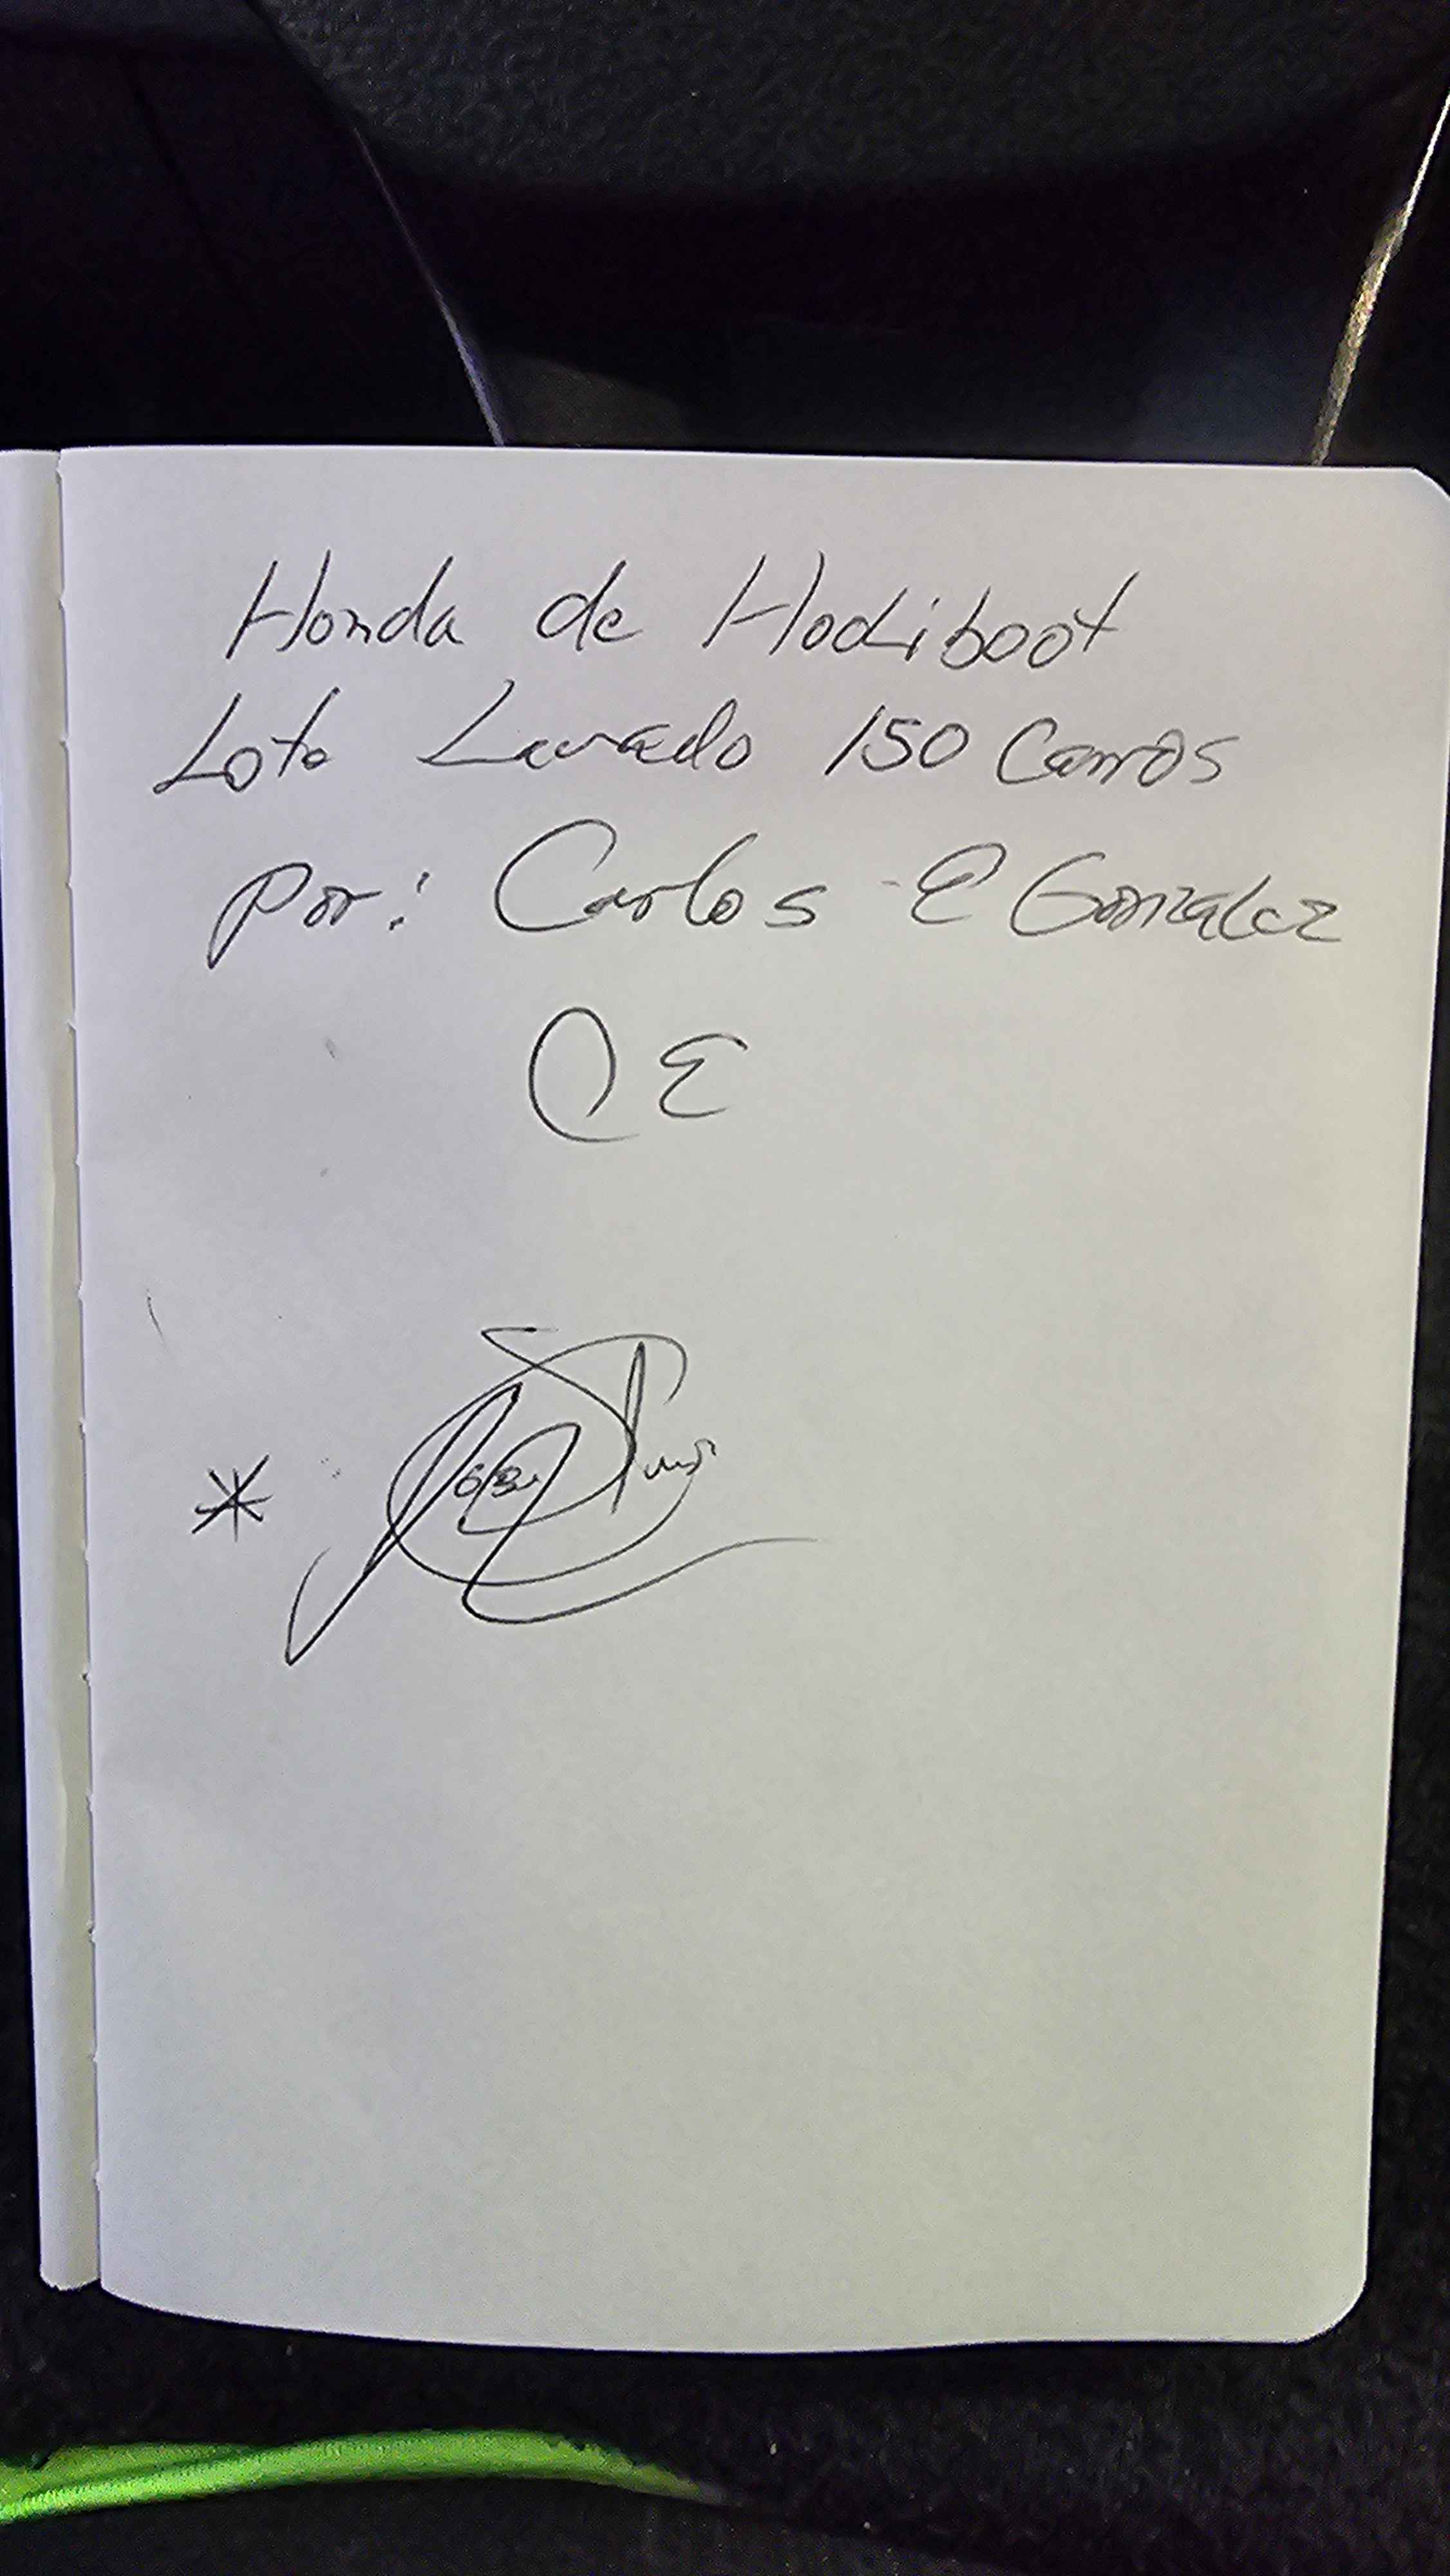 Honda de Hodiboot
Lote Lavado 150 Carros
por: Carlos E Gonzalez
CE
*